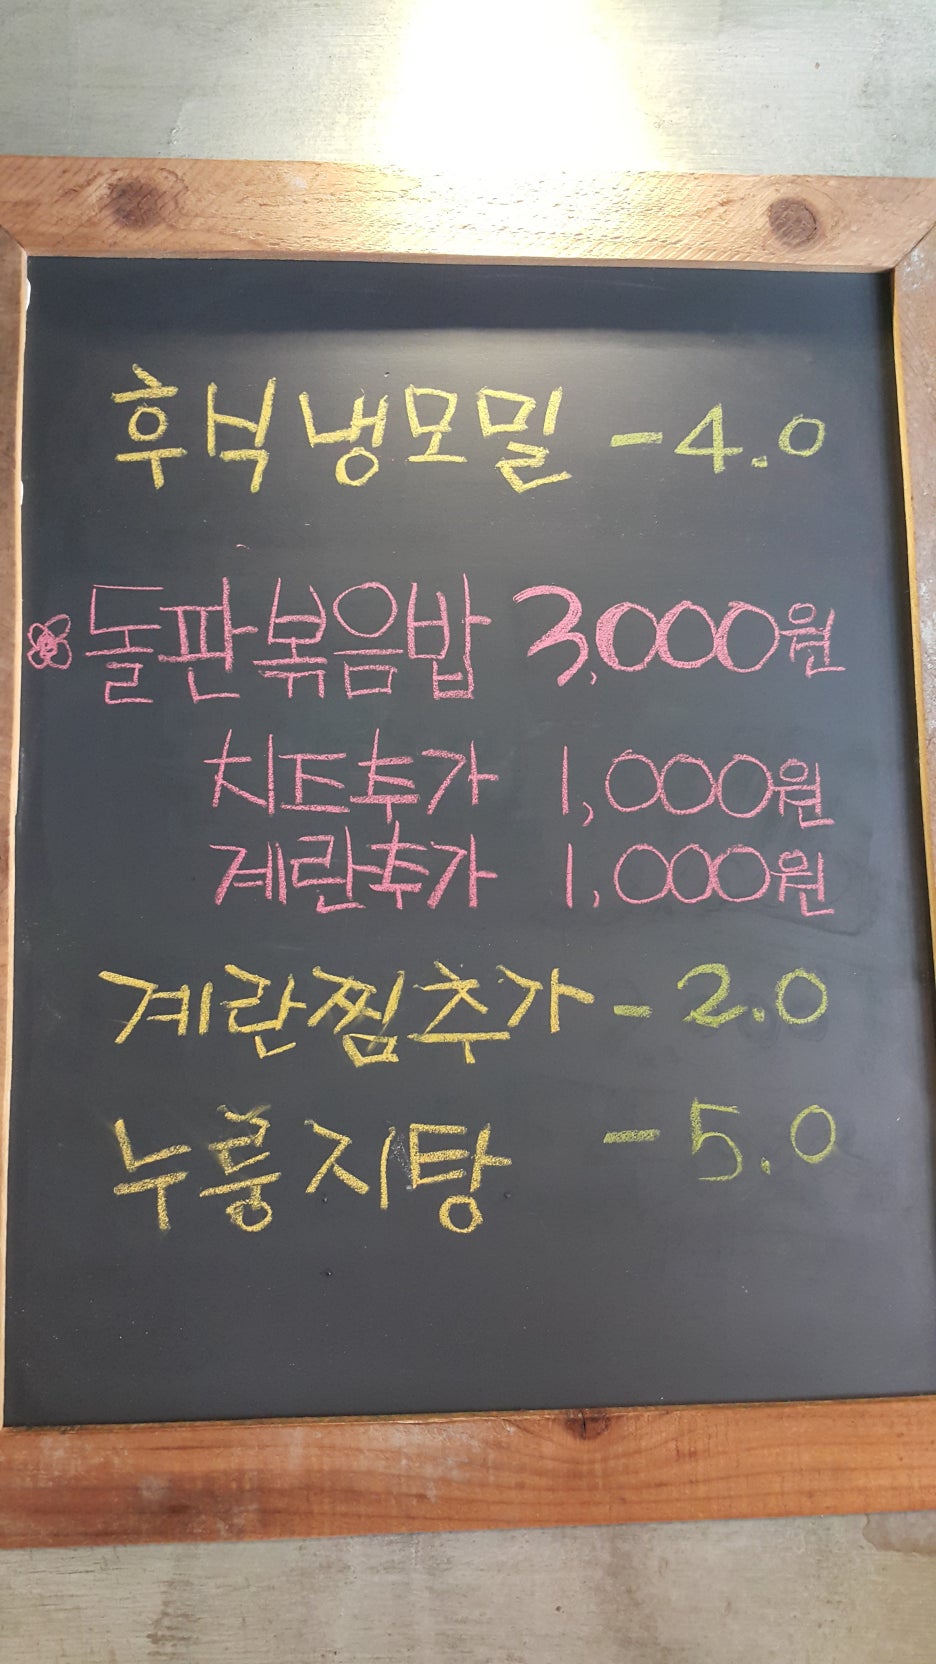 후식냉모밀 - 4.0
돌판볶음밥 3,000원
치즈추가 1,000원
계란추가 1,000원
계란찜추가 - 2.0
누룽지탕 - 5.0